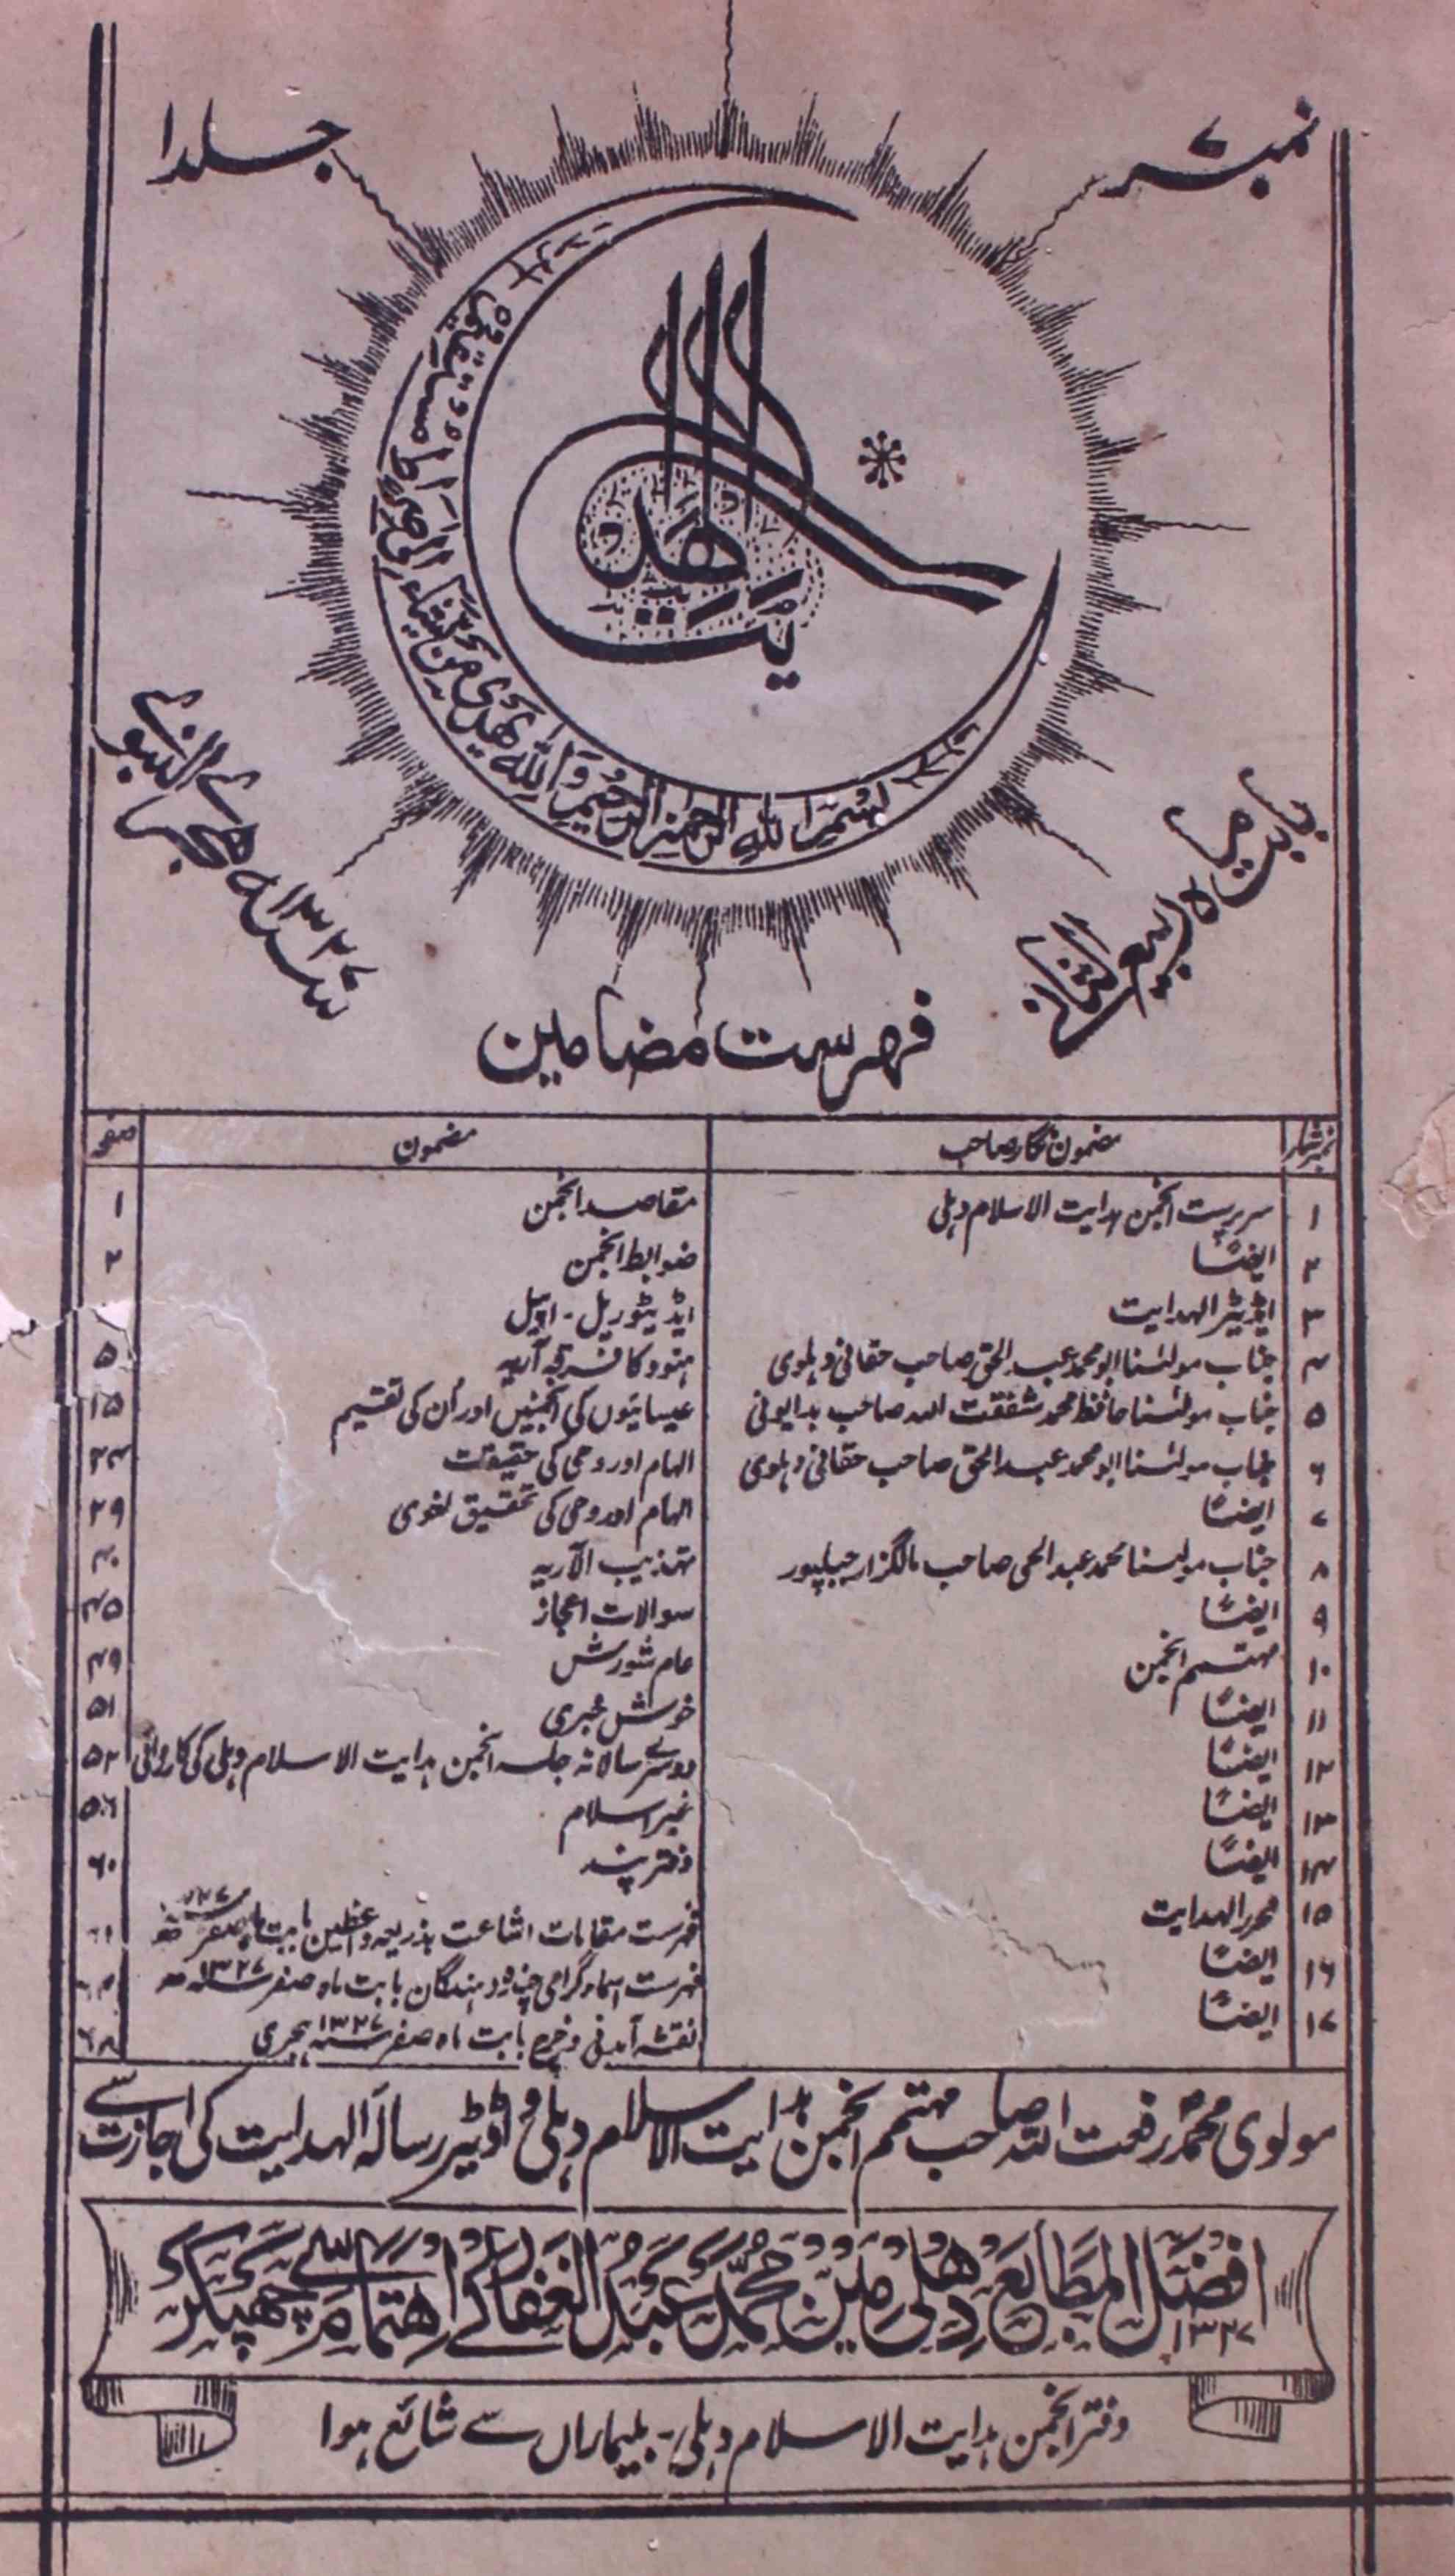 نمبر ۷
جلد ۱
بسم الله الرحمن الرحيم والله يهدي من يشاء الى صراط مستقيم
الهدایت
بابت ماہ ربیع الثانی
سنہ ۱۳۲۷ ہجری النبوی
فہرست مضامین
نمبر شمار مضمون نگار صاحب مضمون صفحہ
۱ سرپرست انجمن ہدایت الاسلام دہلی مقاصد انجمن ۱
۲ ایضًا ضوابط انجمن ۲
۳ ایڈیٹر الہدایت ایڈیٹوریل - اپیل
۴ جناب مولٰسنا ابو محمد عبد الحق صاحب حقانی دہلوی ہنود کا فرقہ آریہ ۵
۵ جناب مولٰسنا حافظ محمد شفقت اللہ صاحب بدایونی عیسائیوں کی انجمنیں اور اُن کی تقسیم ۱۵
۶ جناب مولٰسنا ابو محمد عبد الحق صاحب حقانی دہلوی الہام اور وحی کی حقیقت ۲۳
۷ ایضًا الہام اور وحی کی تحقیق لغوی ۲۹
۸ جناب مولٰسنا محمد عبد الحی صاحب مالگزار جبلپور تہذیب الآریہ ۴۰
۹ ایضًا سوالات اعجاز ۴۵
۱۰ مہتمم انجمن عام شورش ۴۹
۱۱ ایضًا خوش خبری ۵۱
۱۲ ایضًا دوسرے سالانہ جلسہ انجمن ہدایت الاسلام دہلی کی کاروائی ۵۲
۱۳ ایضًا خبر اسلام ۵۶
۱۴ ایضًا دفتر پند ۶۰
۱۵ محرر الہدایت فہرست مقامات اشاعت بذریعہ واعظین بابت ماہ صفر
۱۶ ایضًا فہرست اسماء گرامی چندہ دہندگان بابت ماہ صفر سنہ ۱۳۲۷ ھ
۱۷ ایضًا نقشہ آمدنی و خرچ بابت ماہ صفر سنہ ۱۳۲۷ ہجری ۶۸
مولوی محمد رفعت اللہ صاحب مہتمم انجمن ہدایت الاسلام دہلی و اڈیٹر رسالہ الہدایت کی اجازت سے
افضل المطابع دہلی میں محمد عبد الغفار کے اہتمام سے چھپکر
۱۳۲۷
دفتر انجمن ہدایت الاسلام دہلی - بلیماراں سے شائع ہوا